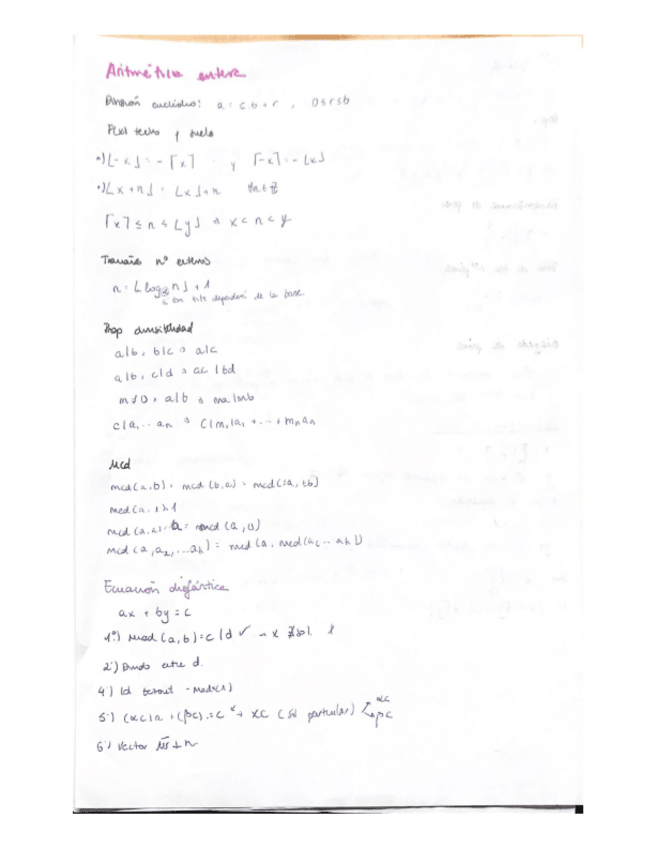 Aritmética entera
División euclídea: a = c.b + r , 0≤r≤b
techo y suelo
•) ⌊-x⌋ = -⌈x⌉ y ⌈-x⌉ = -⌊x⌋
•) ⌊x+n⌋ = ⌊x⌋+n ∀n∈ℤ
⌈x⌉ ≤ n ≤ ⌊y⌋ x < n < y
Tamaño nº enteros
n = ⌊log₂ n⌋ + 1
en bits dependerá de la base
Prop divisibilidad
a|b, b|c → a|c
a|b, c|d → ac|bd
m≠0, a|b → ma|mb
c|a, ... aₙ → c|m₁a₁ + ... + mₙaₙ
Mcd
mcd(a,b) = mcd(b,a) = mcd(±a, ±b)
mcd(a, 1)=1
mcd(a,a) = a = mcd(a,0)
mcd(a, a₂, ... aₖ) = mcd(a, mcd(a₂ ... aₖ))
Ecuación diofántica
ax + by = c
1º) mcd(a,b) = c|d ✓ → x ∄ sol
2º) Divido entre d.
4º) Id bezout - mcd
5º) (αc)a + (βc) = c → xc (sol particular) αc
βc
6º) Vector ⊥ n